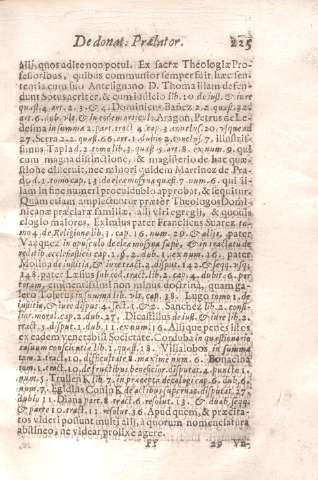 De donat. Prælator. 225
alij, quos adire non potui. Ex sacræ Theologiæ Pro-
fessoribus, quibus communior semper fuit hæc sen-
tentia cum suo Antesignano D. Thoma illam defen-
dunt Sotus acriter, & cum iudicio lib. 10 de iust. & iure
quæst. 4 art. 2. 3 & 4. Dominicus Bañez 2.2. quæst. 32
art. 6. dub. vlt. & in eodem articulo. Aragon, Petrus de Le-
desma in summa 2. part. tract. 4. cap. 3
27. Serra 2.2. quæst. 66. art. 1. dubio 2. illustris-
simus Tapia 2. tomo lib. 5. quæst. 3. art. 8. ex num. 9. qui
cum magna distinctione, & magisterio de hac quæ-
stione disseruit, nec minori quidem Martinez de Pra-
do 1. tomo cap. 13. de eleemosyna quæst. 7. num. 6. qui il-
lam in fine numeri procul dubio approbat, & sequitur.
Quam etiam amplectuntur præter Theologos Domi-
nicanæ præclaræ familiæ, alij viri egregij, & quouis
elogio maiores. Eximius pater Franciscus Suarez to-
mo 4. de Religione lib. 3. cap. 16. num. 29. & alijs, pater
Vazquez in opusculo de eleemosyna supè, & in tractatu de
redit. ecclesiasticis cap. 1. §. 2. dub. 1. ex num. 16. pater
Molina de iustitia, & iure tract. 2. disput. 142 & seqq. vsq;
148. pater Lesius sub eod. tract. lib. 2. cap. 4. dubit. 6. pa-
terum, eminentissimi non minus doctrina, quam ga-
lero Toletus in summa lib. vlt. cap. 18. Lugo tomo 1. de
iustitia, & iure disput. 4. sect. 1. & 2. Sanchez lib. 2. consi-
lior. moral. cap. 2. dub. 27. Dicastillus de iust. & iure lib. 2.
tract. 3. disput. 1. dub. 11. ex num. 16. Alijque penes istos
ex eadem venerabili Societate. Corduba in quæstionario
casuum conscientiæ lib. 1. quæst. 18. Villalobos in summa
tom. 2. tract. 10. difficultate 8. maximè num. 6. Bonacina
tom. 1. tract. 10. de fructibus beneficior. disputat. 4. puncto 1.
num. 5 Trullench lib. 7. in præcepta decalogi cap. 6. dub. 6.
num. 7. Egidius Coninck de actibus supernat. disputat. 27.
dubio 11. Diana part. 8. tract. 6. resolut. 13. & dubijs seqq.
& parte 10. tract. 11. resolut. 36. Apud quem, & præcita-
tos videri possunt multi alij, à quorum nomenclatura
abstineo, ne videar prolixè agere.
Ff 29 Vn-